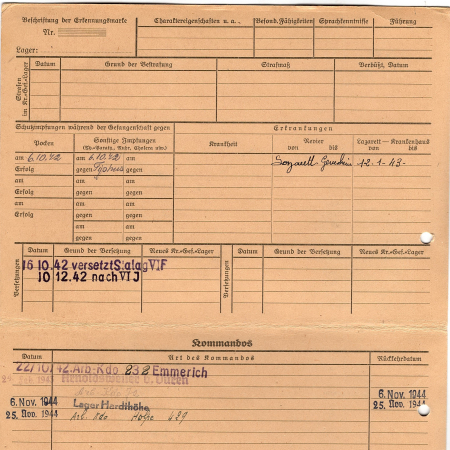 Beschriftung der Erkennungsmarke
Nr.
Lager:
Charaktereigenschaften u. a.
Besond. Fähigkeiten
Sprachkenntnisse
Führung
Strafen im Kr.-Gef.-Lager
Datum
Grund der Bestrafung
Strafmaß
Verbüßt, Datum
Schutzimpfungen während der Gefangenschaft gegen
Erkrankungen
Pocken
Sonstige Impfungen
(Ty.-Paraty., Ruhr, Cholera usw.)
Krankheit
Revier
von bis
Lazarett – Krankenhaus
von bis
am 6.10.42
am 6.10.42
Lazarett 12.1.43-
Erfolg
gegen Typhus
am
am
Erfolg
gegen
am
am
Erfolg
gegen
am
gegen
Versetzungen
Datum
Grund der Versetzung
Neues Kr.-Gef.-Lager
Versetzungen
Datum
Grund der Versetzung
Neues Kr.-Gef.-Lager
16 10.42 versetzt Stalag VI F
10 12.42 nach VI J
Kommandos
Datum
Art des Kommandos
Rückkehrdatum
22/10/42 Arb-Kdo 232 Emmerich
25. Feb. 1943 Arnoldsweiler b. Düren
6. Nov. 1944
Lager Hardthöhe
6. Nov. 1944
25. Nov. 1944
Arb. Kdo 429
25. Nov. 1944